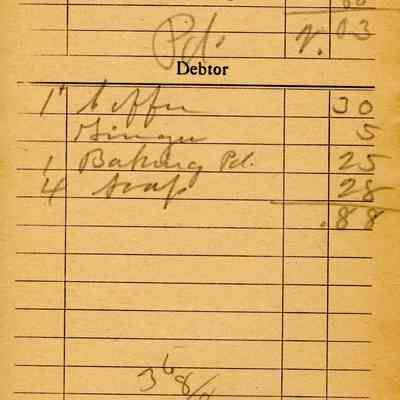 60
Pd. .03
Debtor
1 Coffee 30
Ginger 5
1 Baking Pd. 25
4 soap 28
.88